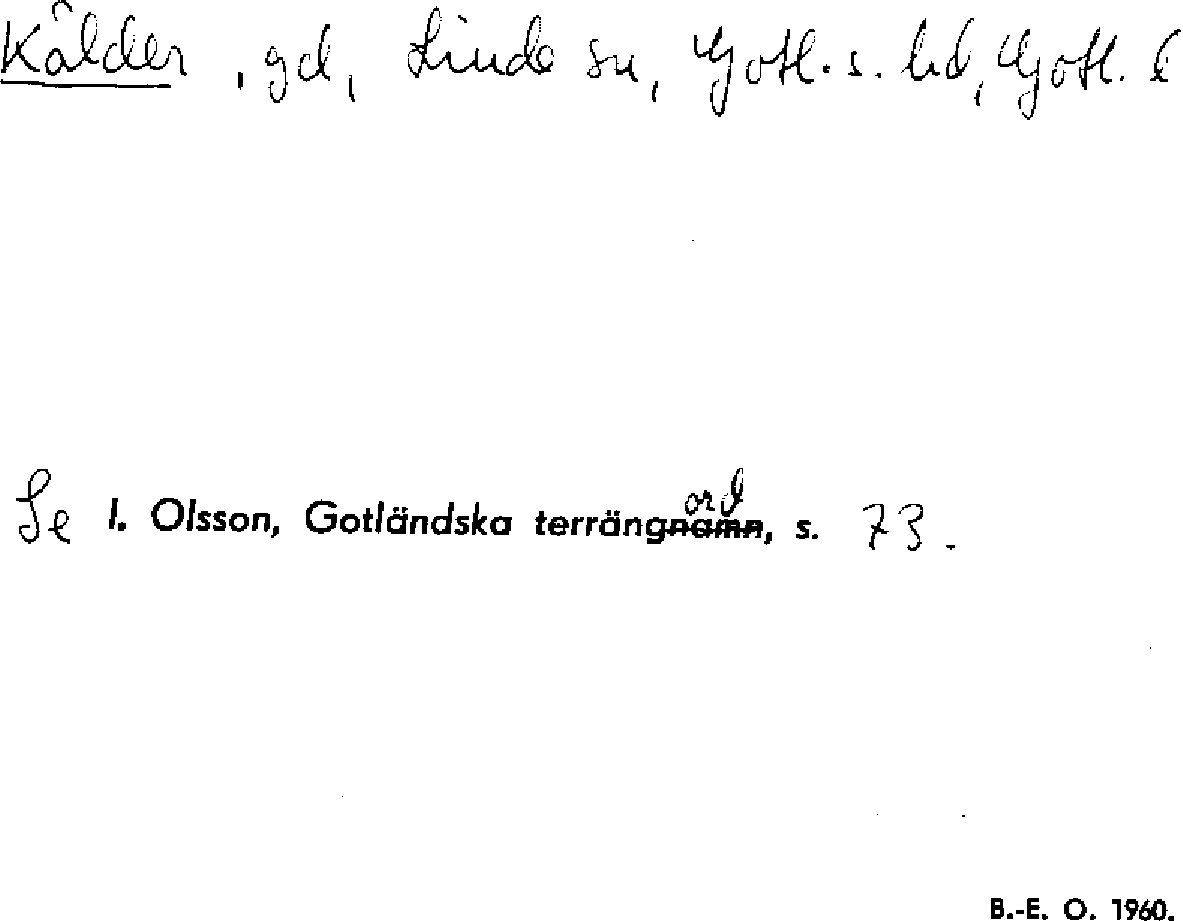 Kälder, gd, Linde sn, Gotl. s. hd, Gotl. l
Se I. Olsson, Gotländska terrängnamn ord, s. 73.
B.-E. O. 1960.